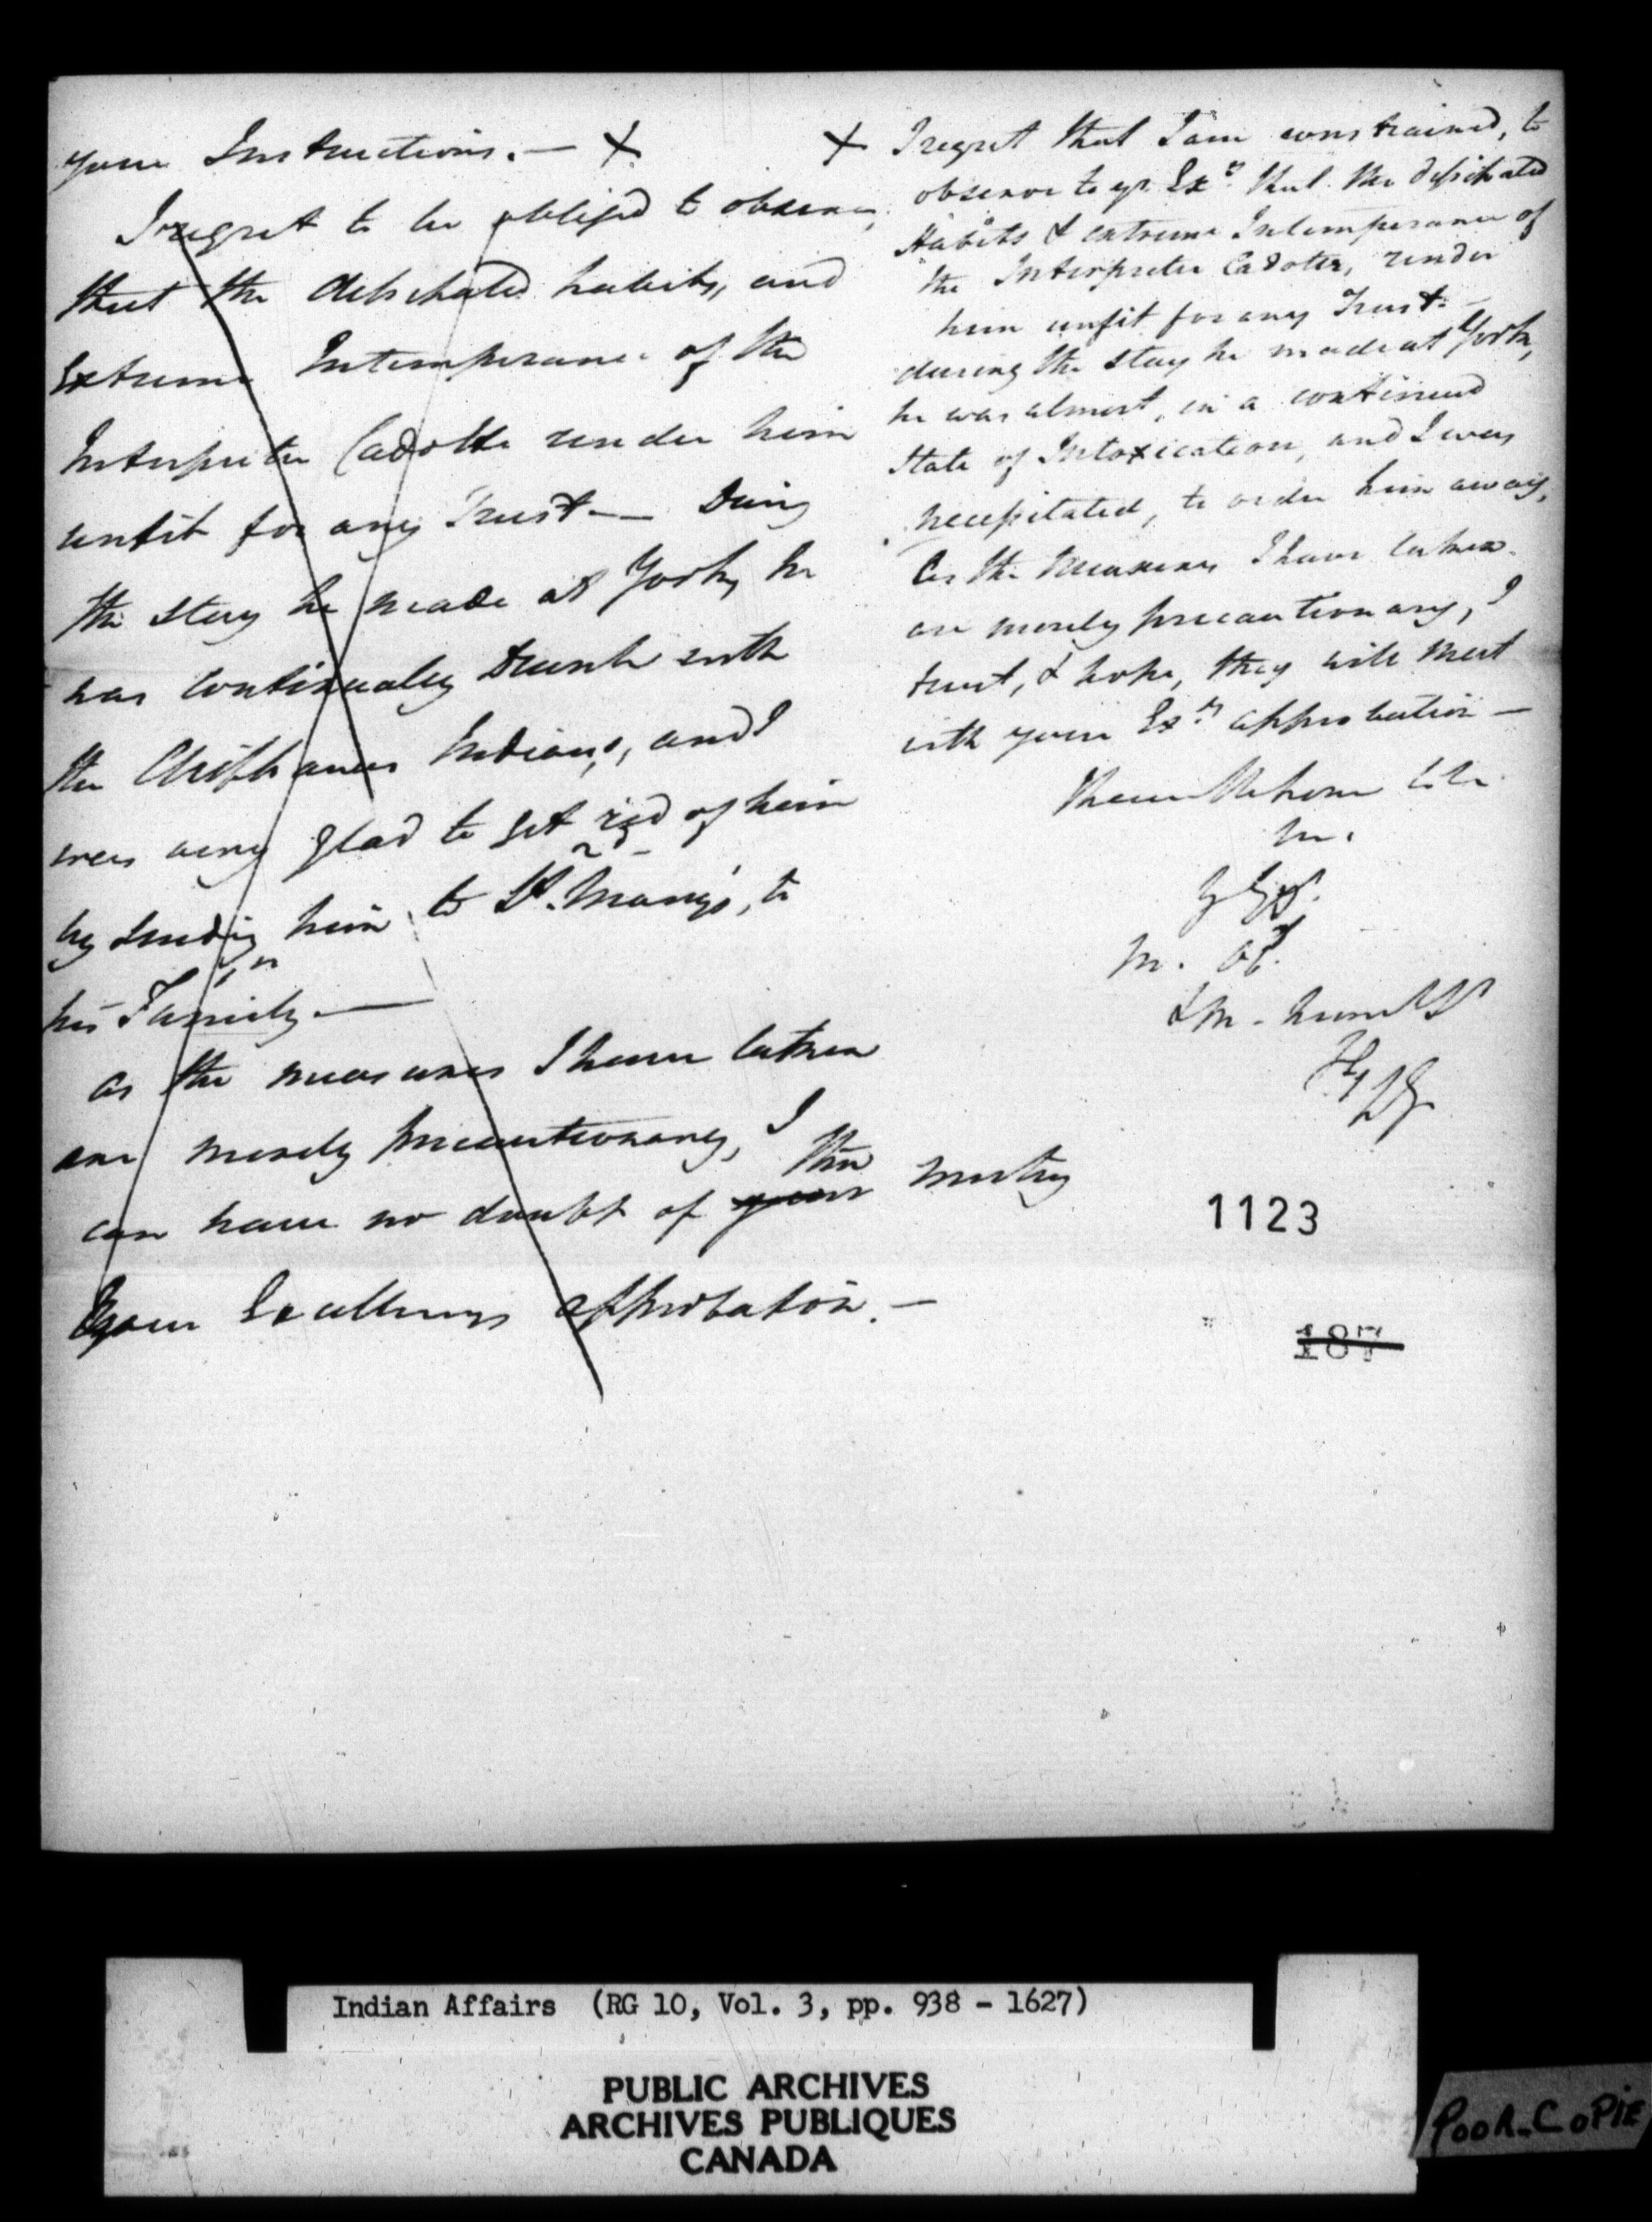 your Instructions. — X
I regret to be obliged to observe,
that the debschated habits, and
Extreme Intemperance of the
Interpreter Cadotte render him
unfit for any Trust — During
the stay he made at York, he
was continually Drunk with
the Chippawas Indians, and I
was very glad to get rid of him
by sending him to St. Mary's, to
his Family. —
As the measures I have taken
are merely precautionary, I
can have no doubt of your the meeting
Your Excellencys approbation. —
X I regret that I am constrained, to
observe to yr. Exy. that the
Habits & extreme Intemperance of
the Interpreter Cadotte, render
him unfit for any Trust. —
during the stay he made at York,
he was almost, in a continued
State of Intoxication, and I was
necessitated, to order him away,
As the Measures I have taken
are merely precautionary, I
trust, & hope, they will meet
with your Exys. approbation —
I have the honor to be
1123
187
Indian Affairs (RG 10, Vol. 3, pp. 938 - 1627)
PUBLIC ARCHIVES
ARCHIVES PUBLIQUES
CANADA
POOR COPIE